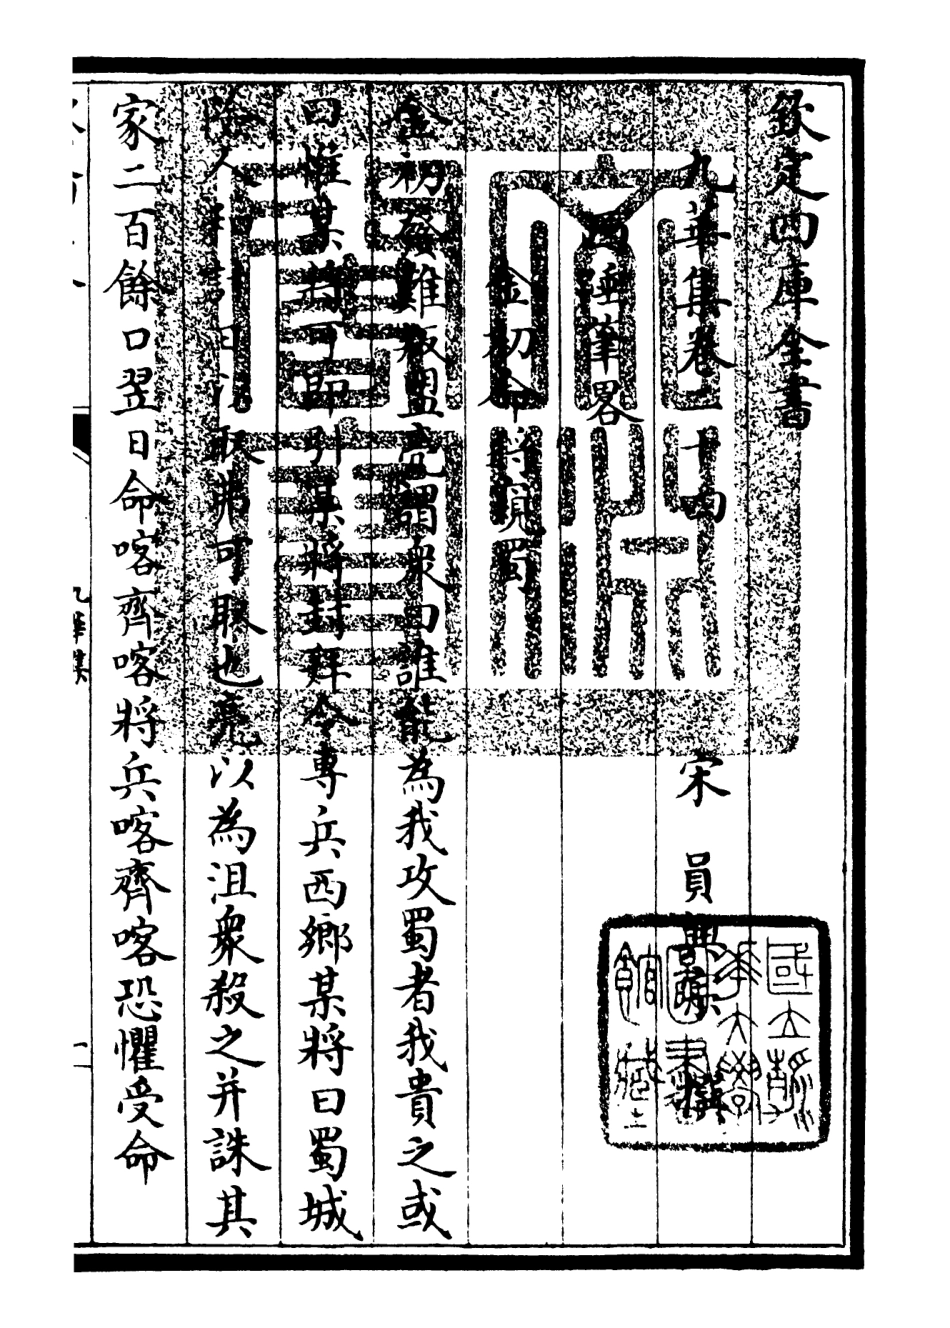 欽定四庫全書
九華集卷二十四
宋 員興宗 撰
西陲筆略
金初命將窺蜀
金初發難叛盟亮謂衆曰誰能為我攻蜀者我貴之或
曰惟某將可即引某將封拜令專兵西鄉某將曰蜀城
險人 計日 取弗可取也亮以為沮衆殺之并誅其
家二百餘口翌日命喀齊喀將兵喀齊喀恐懼受命
九華集
國立清華大學圖書館藏